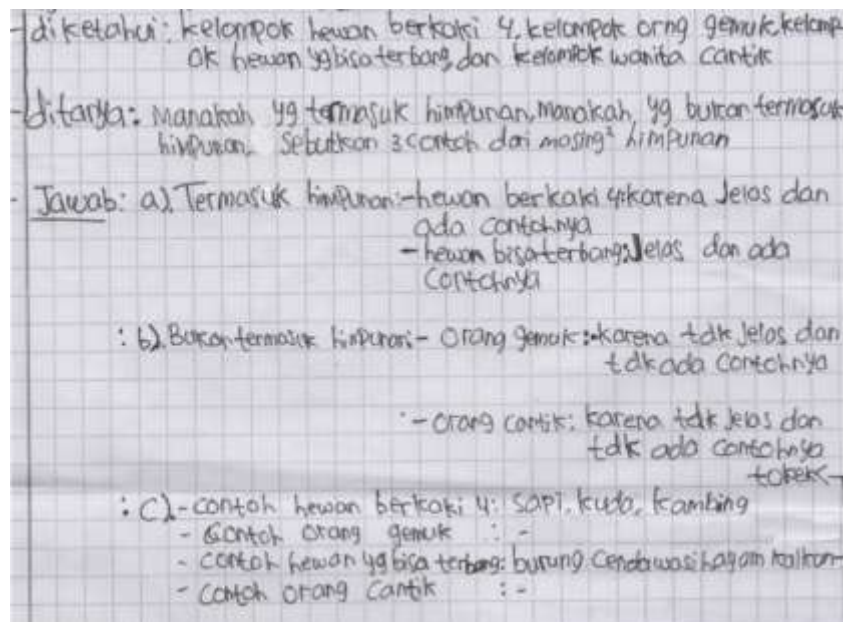 - diketahui: kelompok hewan berkaki 4, kelompok orng gemuk, kelomp
ok hewan yg bisa terbang, dan kelompok wanita cantik
- ditanya: Manakah yg termasuk himpunan, manakah yg bukan termasuk
himpunan. Sebutkan 3 contoh dari masing² himpunan
- Jawab: a). Termasuk himpunan: - hewan berkaki 4: karena Jelas dan
ada contohnya
- hewan bisa terbang: Jelas dan ada
contohnya
: b). Bukan termasuk himpunan - orang gemuk: karena tdk Jelas dan
tdk ada contohnya
- orang cantik: karena tdk Jelas dan
tdk ada contohnya
tokek
: c) - contoh hewan berkaki 4: sapi, kuda, kambing
- contoh orang gemuk : -
- contoh hewan yg bisa terbang: burung Cendawasih, ayam kalkun
- contoh orang cantik : -